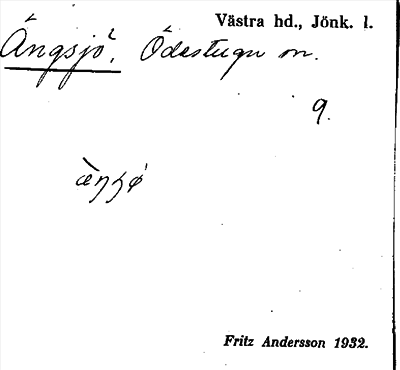 Västra hd., Jönk. l.
Ängsjö². Ödestugu sn.
9.
Fritz Andersson 1932.